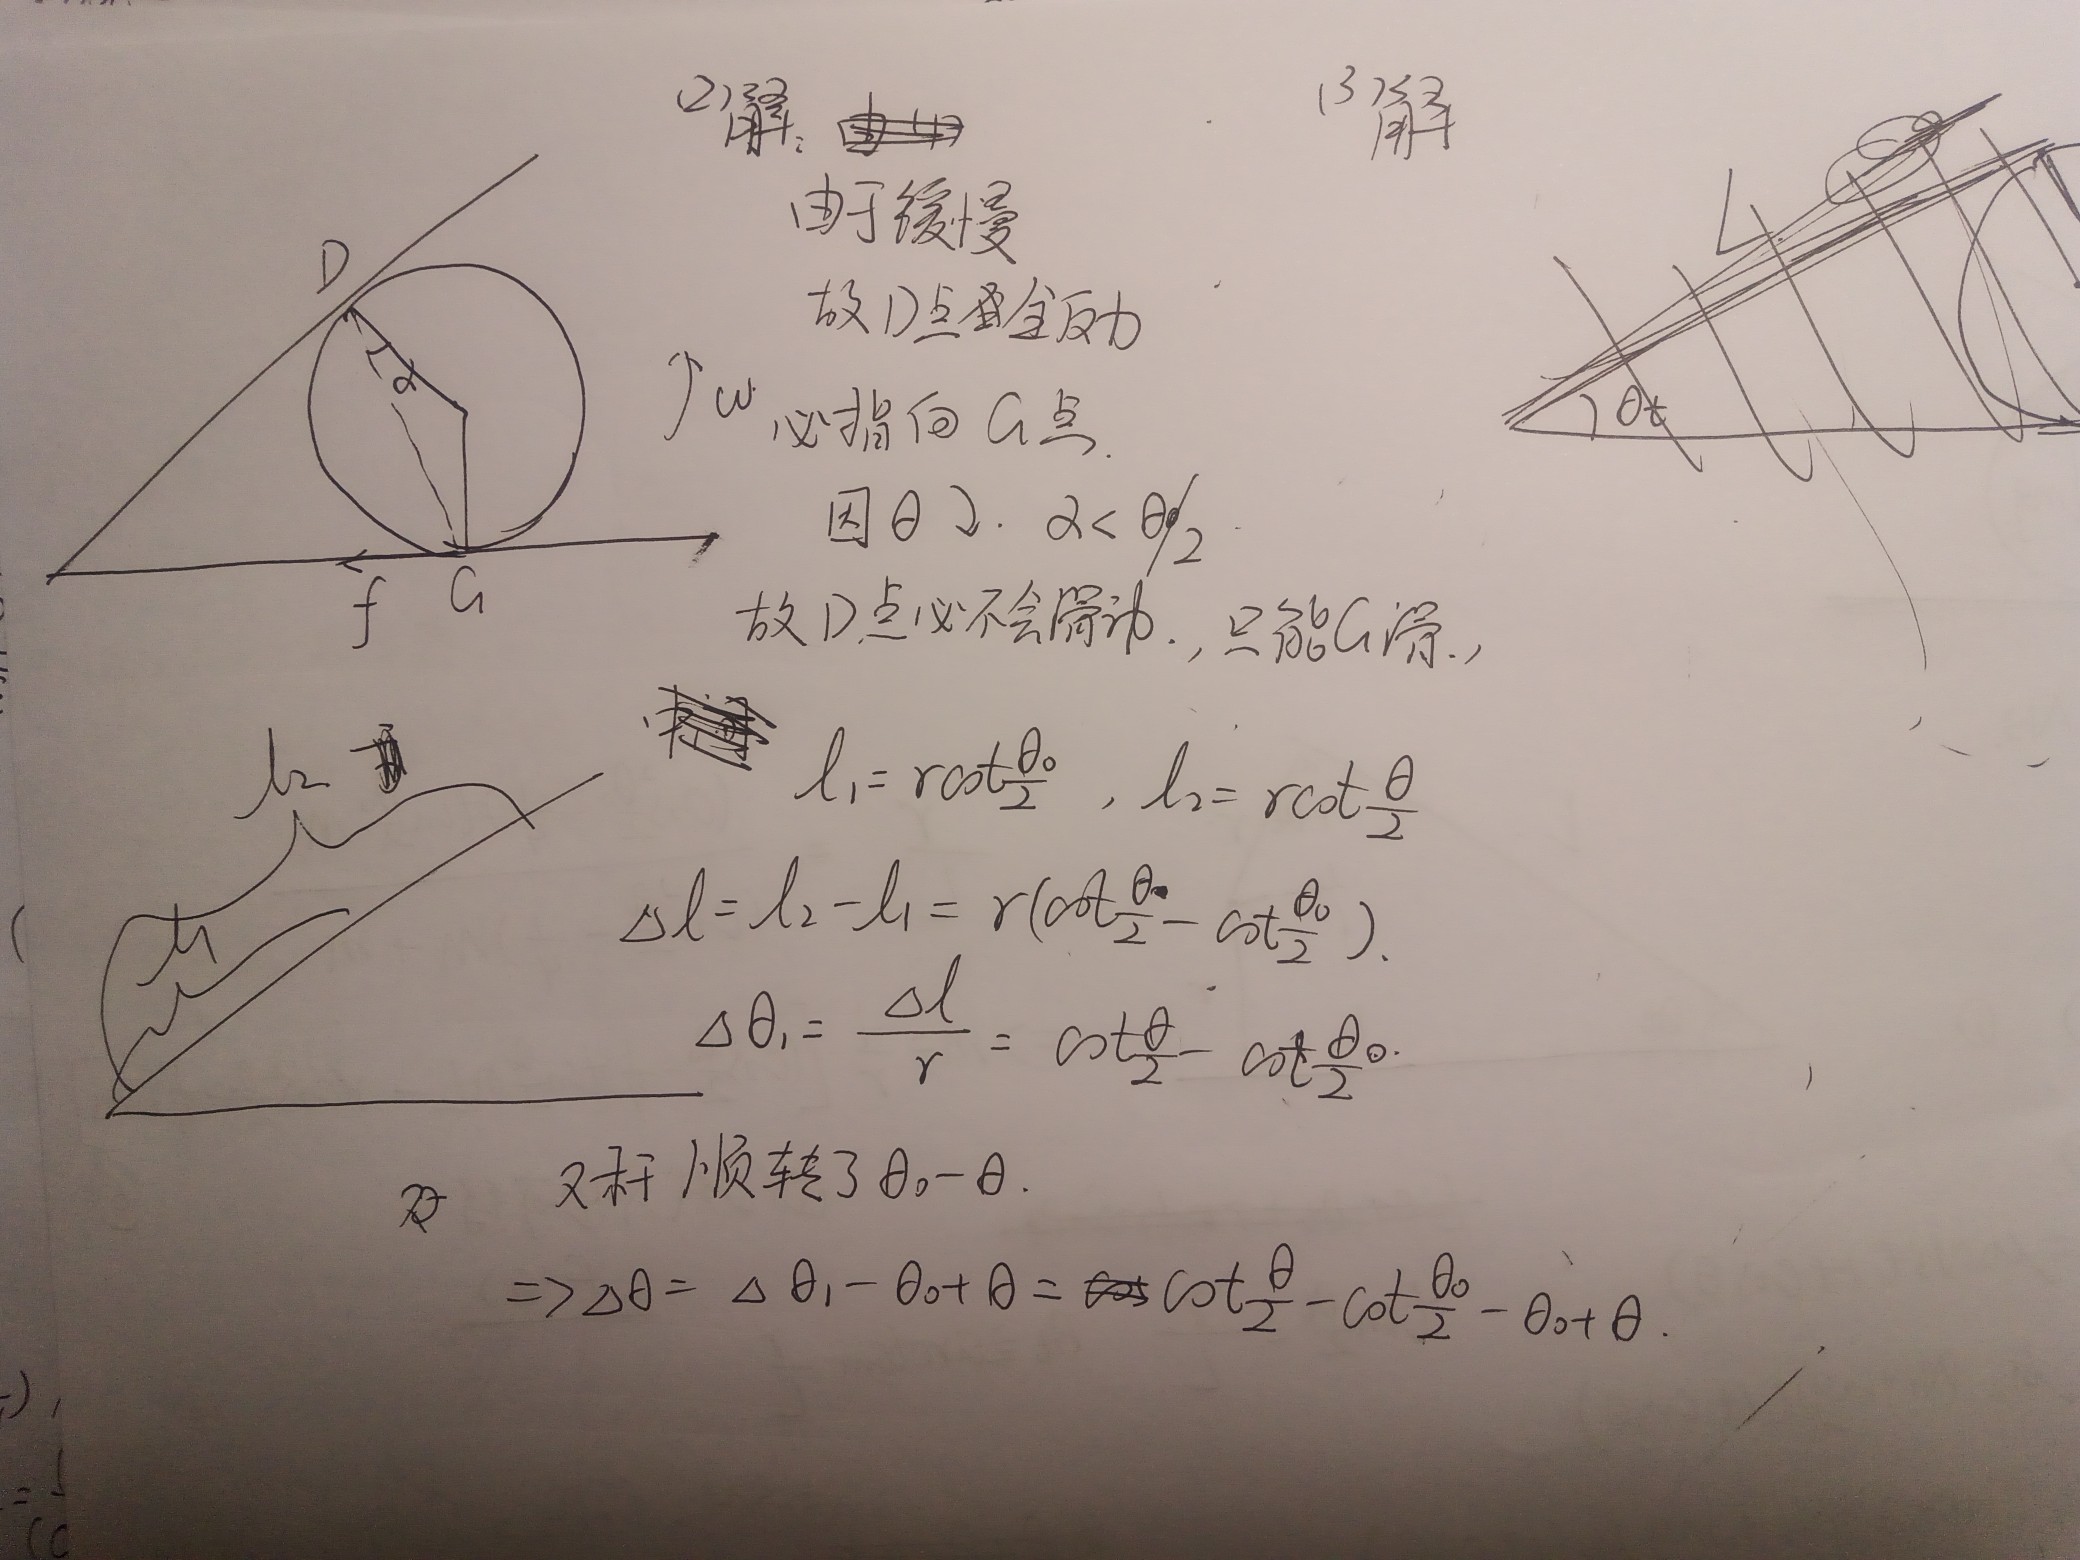 (2)解:
由于缓慢
故D点全反力
必指向G点.
因θ↓. α<θ/2
故D点必不会滑动., 只能G滑.,
D
α
ω
f
G
l₁=rcot θ₀/2 , l₂=rcot θ/2
Δl=l₂-l₁=r(cot θ/2 - cot θ₀/2).
Δθ₁= Δl/r = cot θ/2 - cot θ₀/2.
l₂
l₁
又杆顺转了θ₀-θ.
=>Δθ= Δθ₁-θ₀+θ= cot θ/2 - cot θ₀/2 - θ₀+θ.
(3)解
L
θt